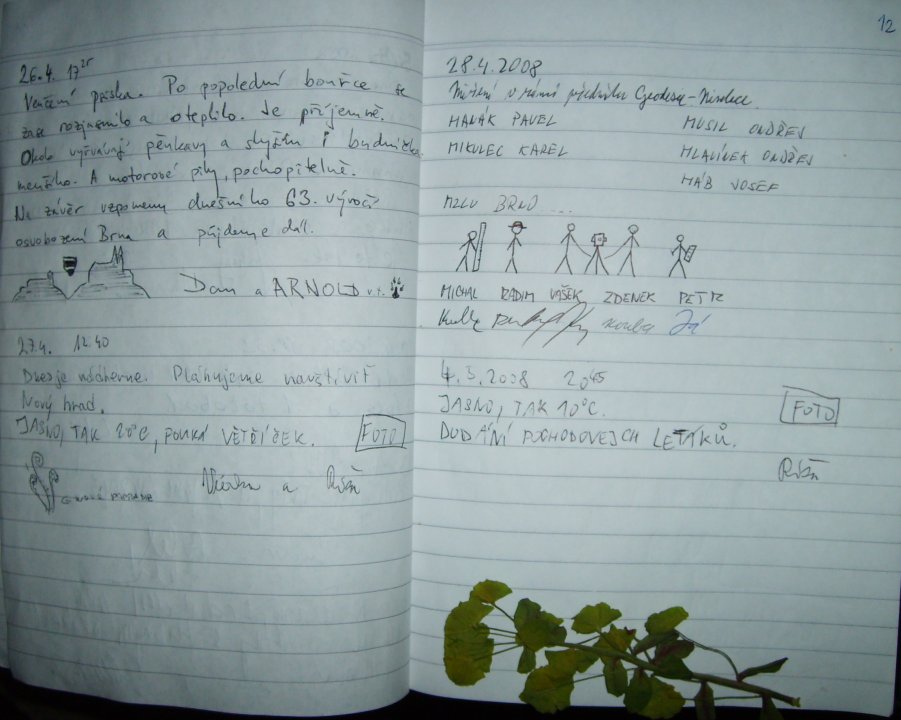 12
26.4. 17²⁵
Venčení páska. Po popolední bouřce se
zase rozjasnilo a oteplilo. Je příjemně.
Okolo vyřvávají pěnkavy a slyším i budníčka
menšího. A motorové pily, pochopitelně.
Na závěr vzpomenu dnešního 63. výročí
osvobození Brna a půjdeme dál.
Dan a ARNOLD v.t.
27.4. 12.40
Dnes je nádherně. Plánujeme navštívit
Nový hrad.
JASNO, TAK 20°C, FOUKÁ VĚTŘÍČEK. FOTO
a Ríša
28.4.2008
Měření v rámci předmětu Geodesie
HANÁK PAVEL MUSIL ONDŘEJ
MIKULEC KAREL MLALÍNEK ONDŘEJ
HÁB JOSEF
MZLU BRNO ...
MICHAL RADIM VAŠEK ZDENEK PETR
Já
4.5.2008 20⁴⁵
JASNO, TAK 10°C. FOTO
DODÁNÍ POCHODOVEJCH LETÁKŮ.
Ríša